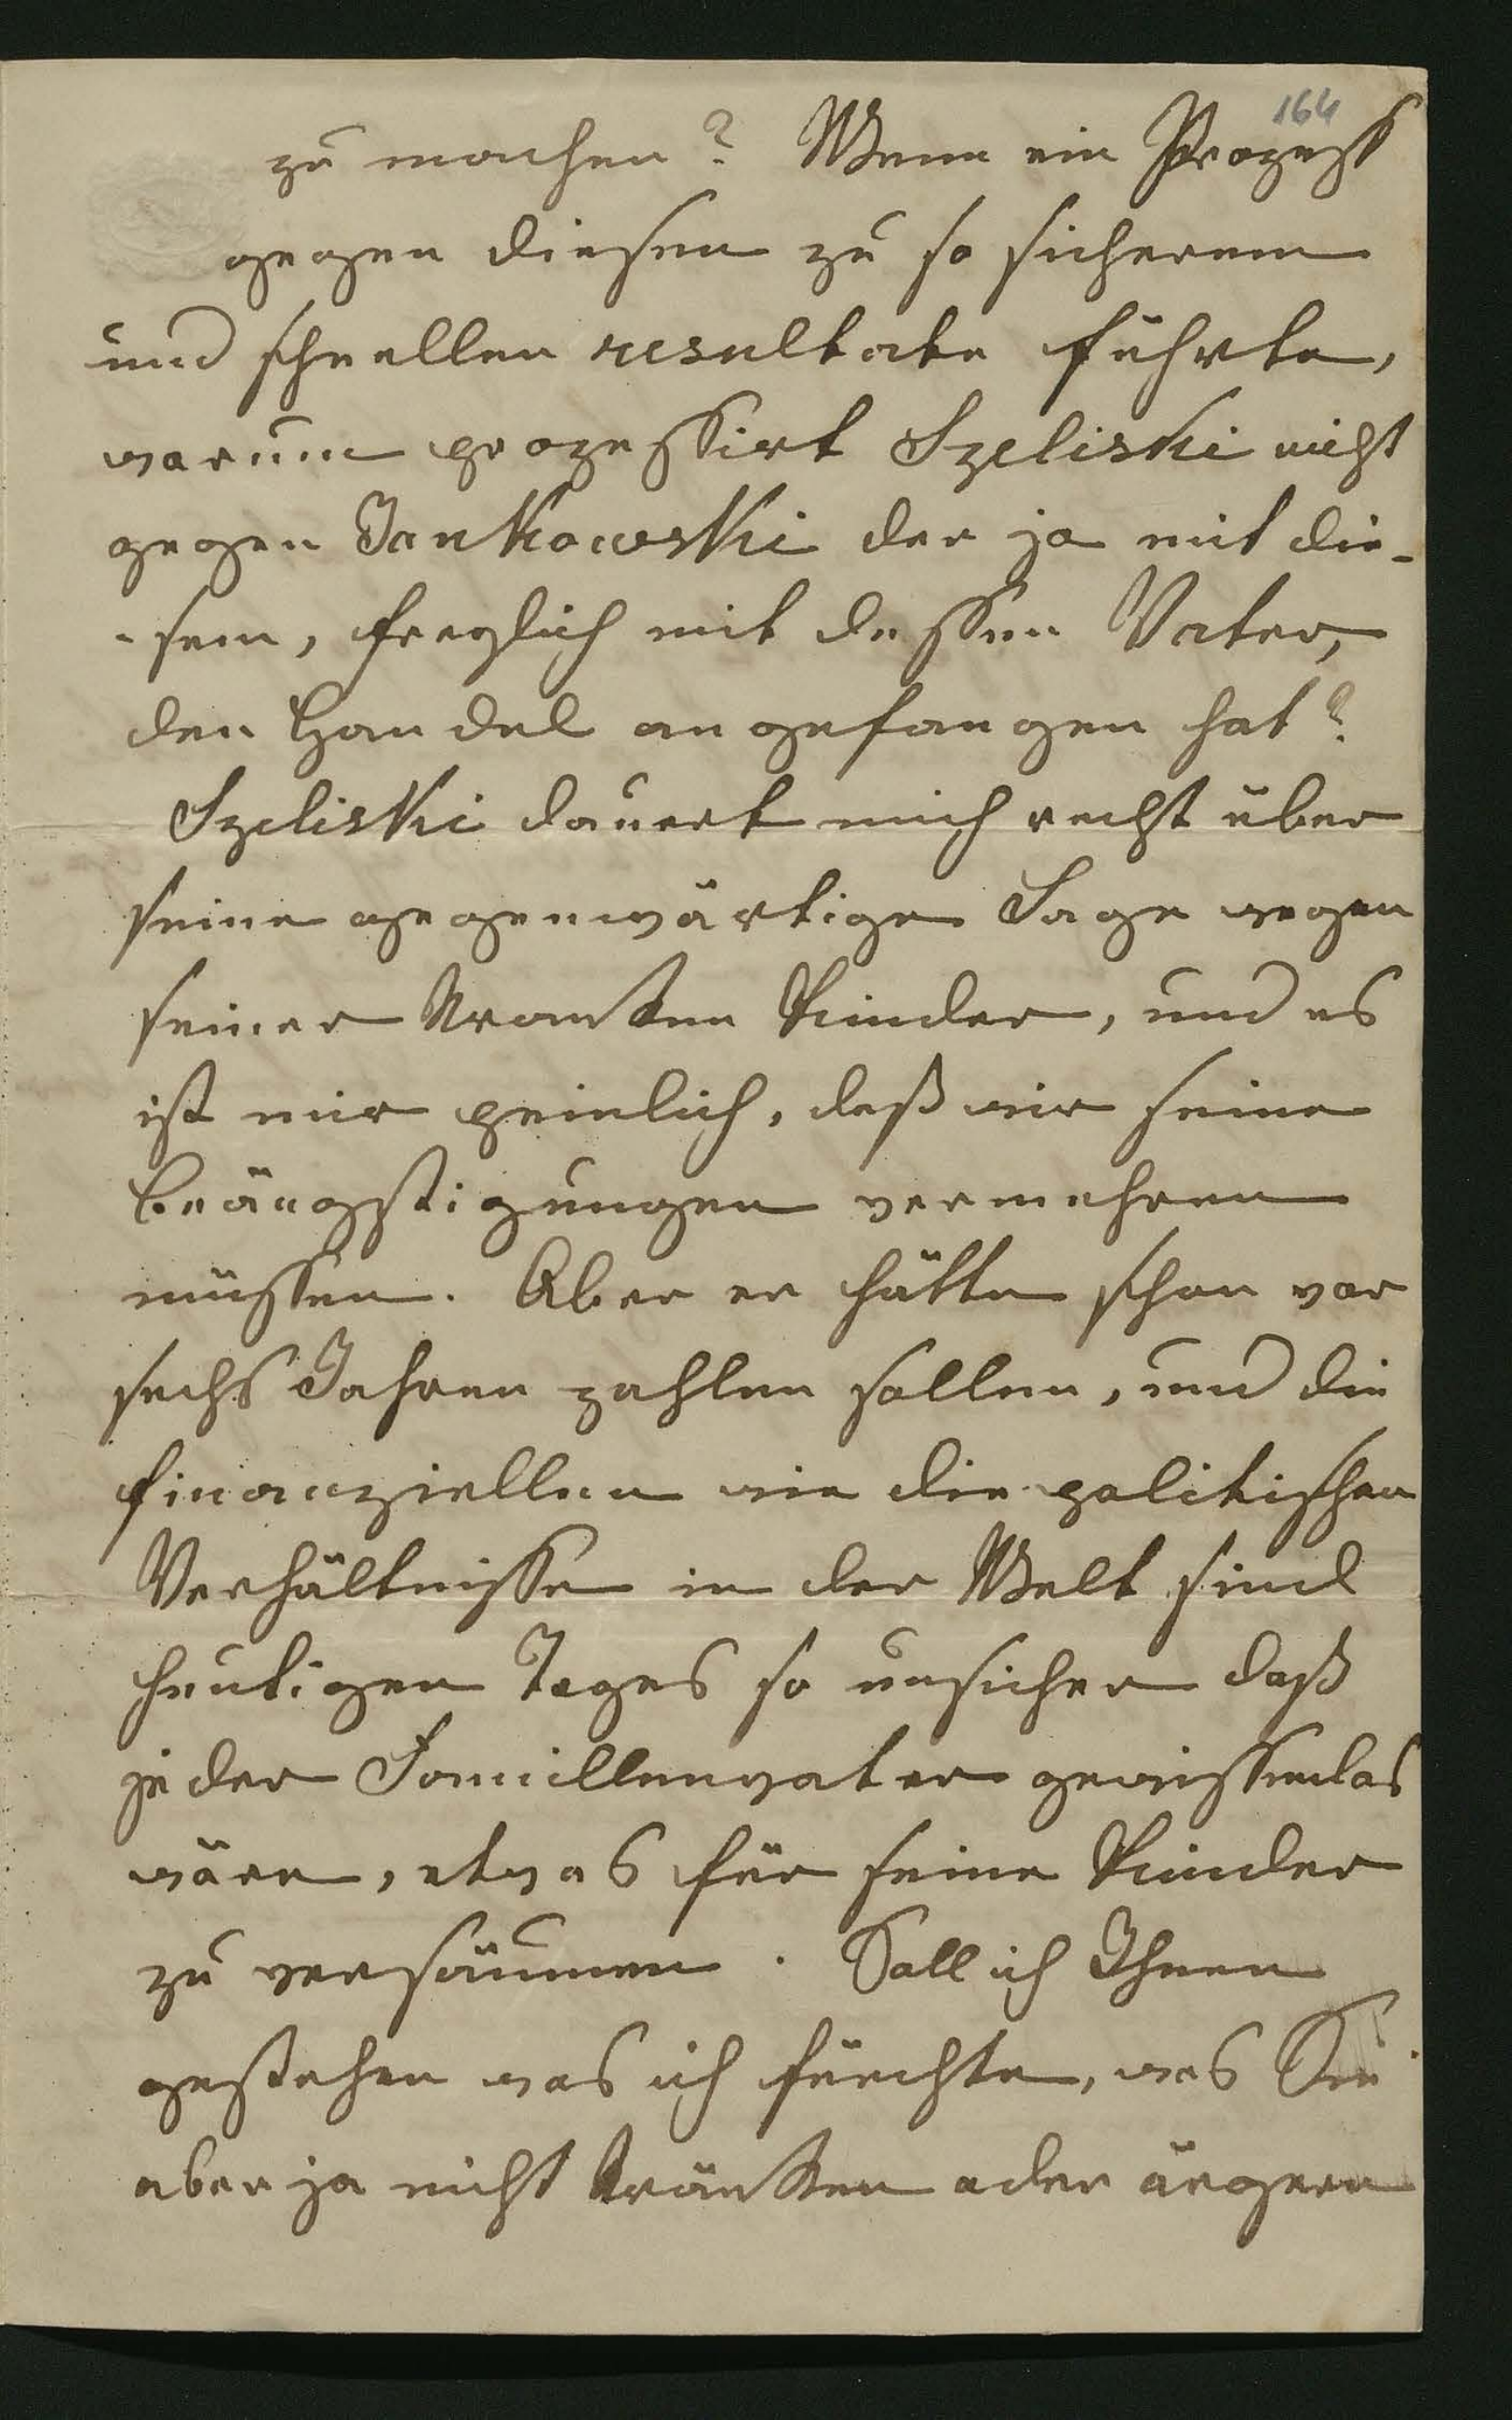 164
zu machen? Wenn ein Prozess
gegen diesen zu so sicherem
und schnellen resultate führte,
warum prozessirt Szeliski nicht
gegen Jankowski der ja mit die-
-sem, freylich mit dessen Vater,
den Handel angefangen hat?
Szeliski dauert mich recht über
seine gegenwärtige Lage wegen
seiner kranken Kinder, und es
ist mir peinlich, daß wir seine
Beängstigungen vermehren
müssen. Aber er hätte schon vor
sechs Jahren zahlen sollen, und die
finanziellen wie die politischen
Verhältnisse in der Welt sind
heutigen Tages so unsicher daß
jeder Familienvater gewissenlos
wäre, etwas für seine Kinder
zu versäumen. Soll ich Ihnen
gestehen was ich fürchte, was Sie
aber ja nicht kränken oder ärgern